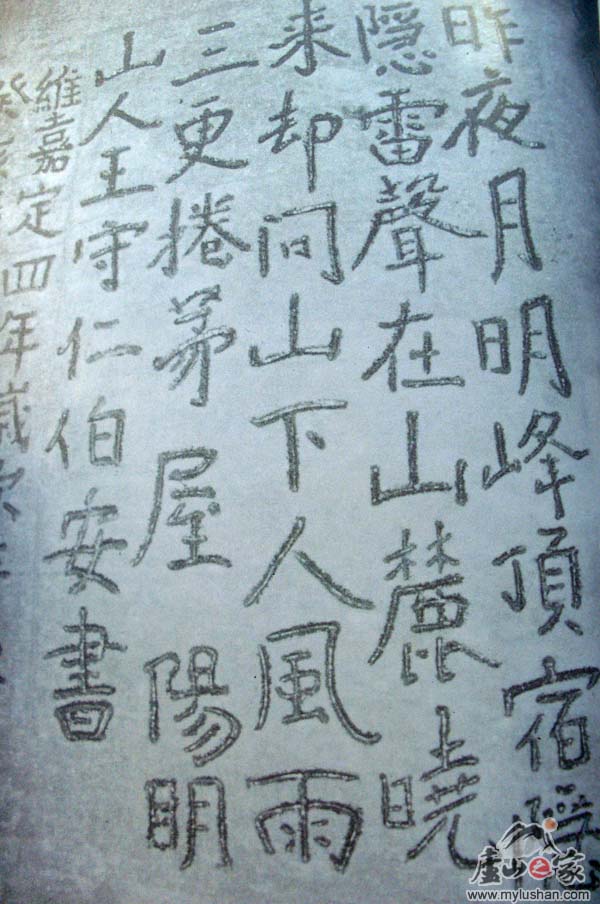 昨夜月明峰頂宿隱
隱雷聲在山麓曉
来却问山下人風雨
三更捲茅屋 陽明
山人王守仁伯安書
維嘉定四年歲
庐山之家
www.mylushan.com